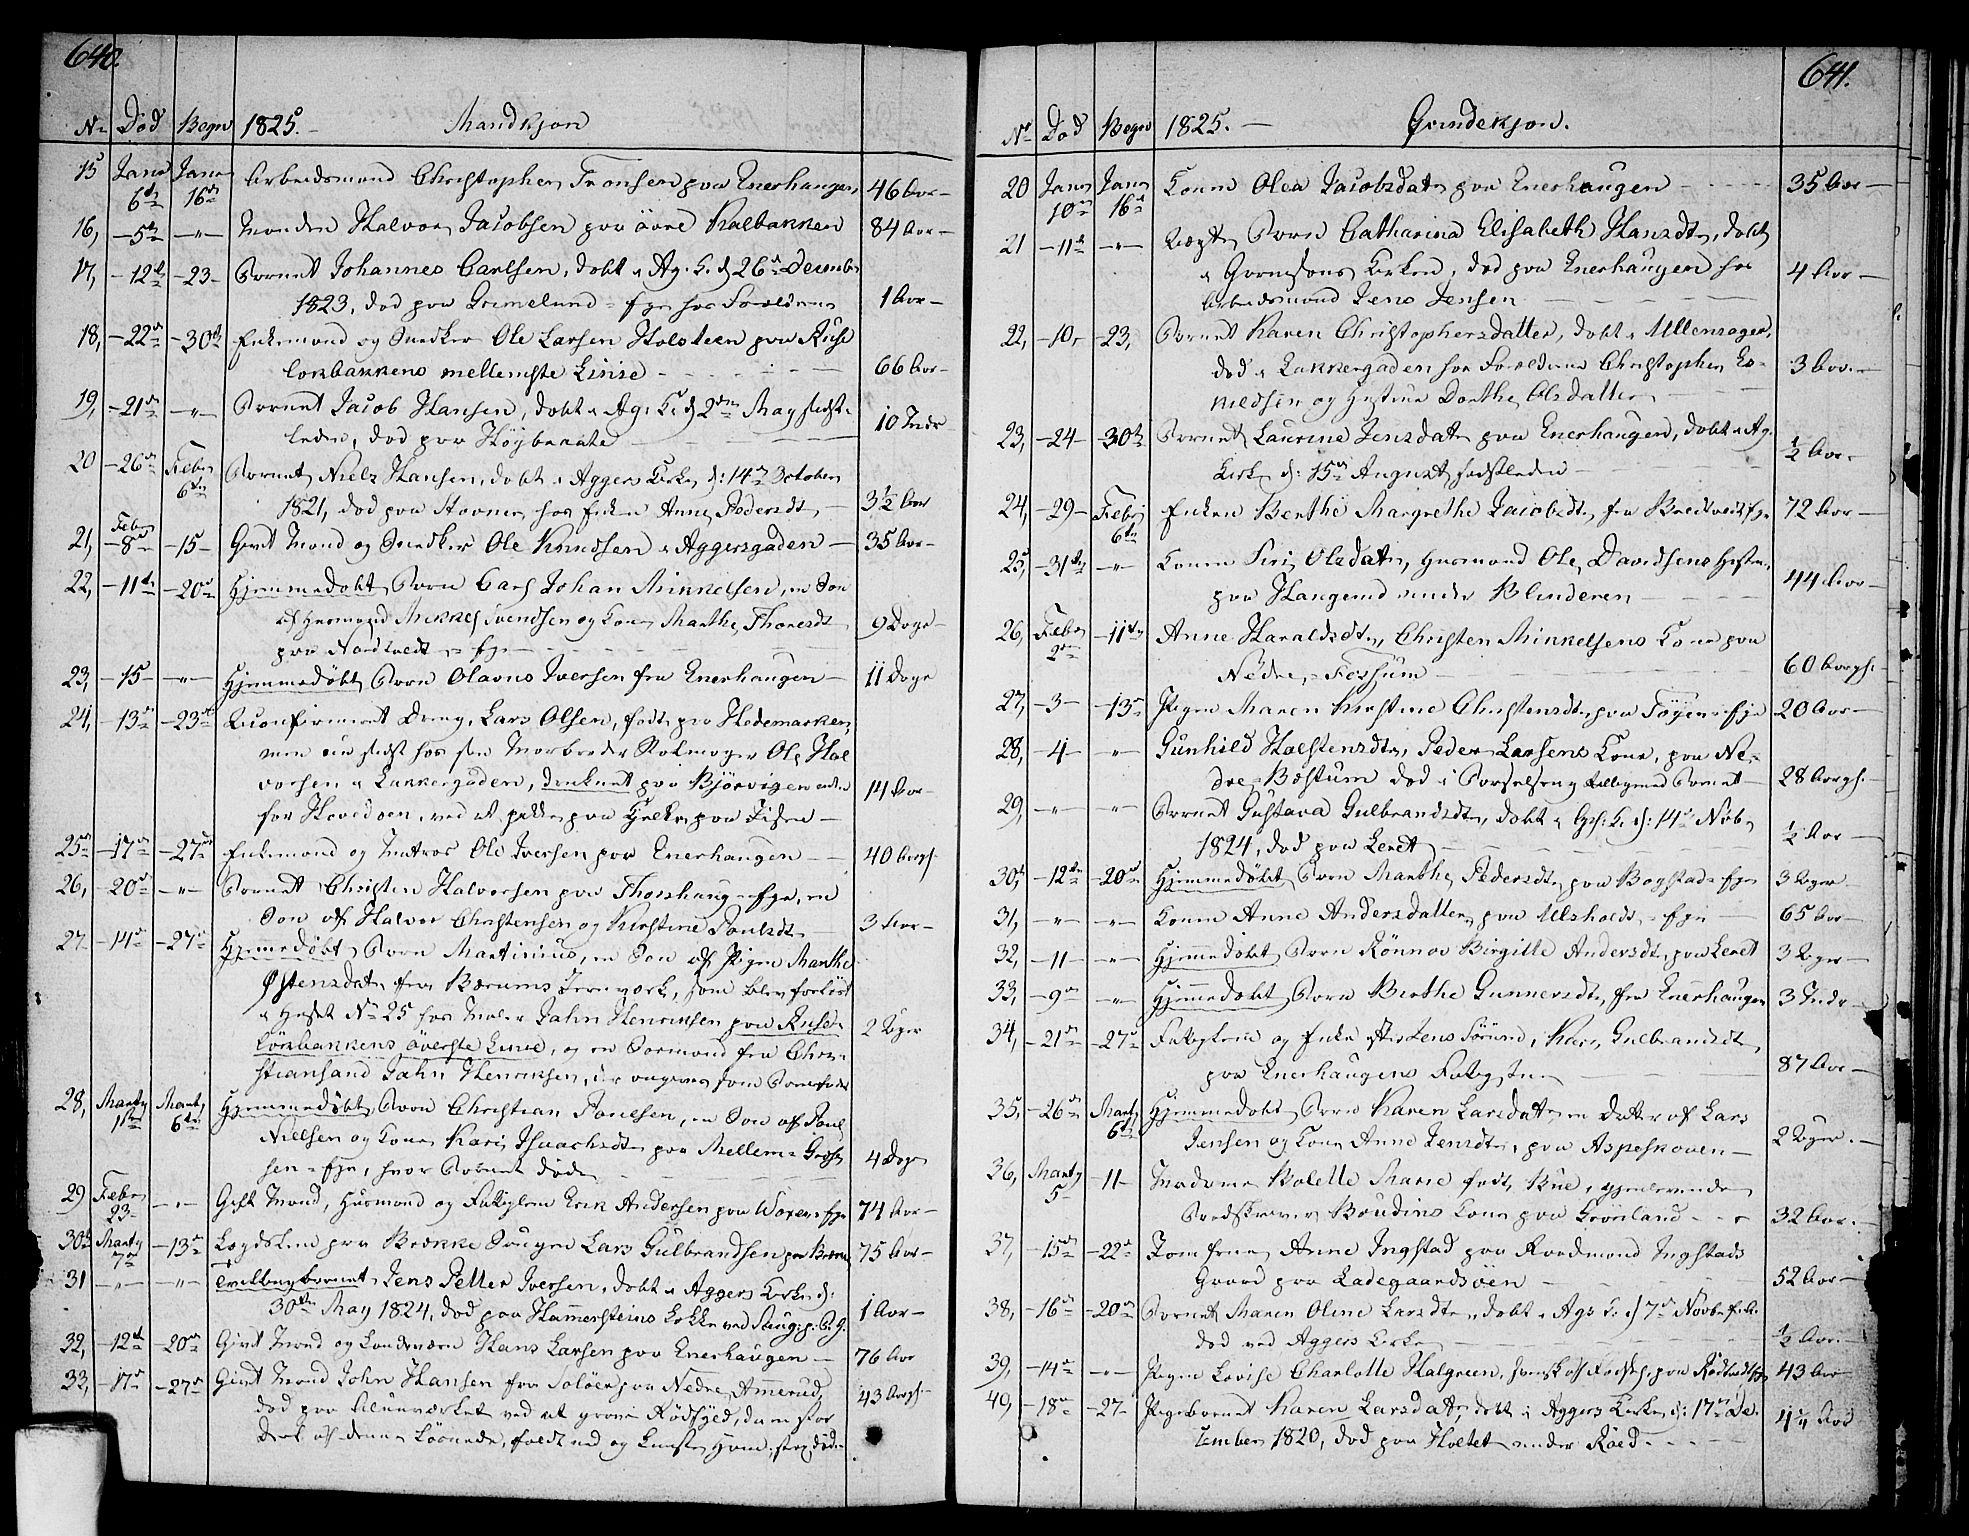 640.
No Död Begr 1825. Mandkjön
15 Janr 6te Janr 16de Arbeidsmand Christopher Fronsen paa Enerhaugen, 46 Aar
16, 5te " Manden Halvor Jacobsen paa övre Kalbakken 84 Aar
17, 12te 23 Barnet Johannes Carlsen, döbt i Ag. K. d 26de December
1823, död paa Grimelund hos Forældrene 1 Aar
18, 22de 30te Enkemand og Snedker Ole Larsen Holsteen paa Ruse
lökbakkens mellemste Linie 66 Aar
19, 21de " Barnet Jacob Hansen, döbt i Ag. K. d 2den May sidst
leden, död paa Höybraate 10 Mdr
20 26de Febr 6te Barnet Niels Hansen, döbt i Aggers Kirke d: 14de October
1821, död paa Hovner hos Enken Anne Pedersdt 3½ Aar
21, Febr 8de 15 Givt Mand og Snedker Ole Knudsen i Aggersgaden 35 Aar
22, 11te 20de Hjemmedöbt Barn Carl Johan Mikkelsen, en Son
af Husmand Mikkel Svendsen og Kone Marthe Thoresdt
paa Nordtvedt 9 Dage
23, 15 " Hjemmedöbt Barn Olavus Iversen fra Enerhaugen 11 Dage
24, 13de 23de Uconfirmeret Dreng, Lars Olsen, födt paa Hedemarken,
men nu sidst hos sin Morbroder Ole Hal
vorsen i Lakkergaden, druknet paa Björvigen
for Hovedöen, ved at paa paa Isen 14 Aar
25de 17de 27de Enkemand og Matros Ole Iversen paa Enerhaugen 40 Aar
26, 20de " Barnet Christen Halvorsen paa Thorshaug, en
Son af Halvor Christensen og Kirstine Poulsdt 3 Aar
27. 14de 27de Hjemmedöbt Barn Martinius, en Son af Pigen Marthe
Østensdatr fra Bærums Jernverk, som blev forlöst
i Huset No 25 hos Maler Jahn Henriksen paa Ruse
lökbakkens överste Linie, og en fra Chri
stiansand Jahn Henriksen, er angiven som Barnefader 2 Uger
28, Marty 1ste Marty 6te Hjemmedöbt Barn Christian Poulsen, en Son af Poul
Nielsen og Kone Kari Isaachsdt paa Mellem
sen, hvor Barnet döde 4 Dage
29 Febr 23 " Gift Mand, Husmand og Erik Andersen paa Voxen 74 Aar
30te Marty 7de 13de Lægdslem paa Brække Lars Gulbrandsen 75 Aar
31 " " Tvillingbarnet Jens Petter Iversen, döbt i Aggers Kirke d:
30te May 1824, död paa Hammersteins Lökke ved 1 Aar
32, 12te 20de Givt Mand og Hans Larsen paa Enerhaugen 76 Aar
33, 17de 27de Givt Mand John Hansen fra Solöer paa Nedre Ammerud,
död paa Alunværket ved at grave Rödfyld, da en stor
Deel af denne lösnede, faldt ud og knuste ham, strax död 43 Aar
641.
No Död Begr 1825. Qvindekjön.
20 Janr 10de Janr 16de Konen Olea Jacobsdatr paa Enerhaugen 35 Aar
21 11te " Barn Catharina Elisabeth Hansdtr, döbt
i Garnisons Kirken, död paa Enerhaugen hos
Arbeidsmand Jens Jensen 4 Aar
22, 10, 23, Barnet Karen Christophersdatter, döbt i Ullensager,
död i Lakkergaden hos Forældrene Christopher Cor
neldsen og Hustrue Dorthe Olsdatter 3 Aar
23, 24 30te Barnet Laurine Jensdatr paa Enerhaugen, döbt i Ag.
Kirke d: 15de August sidstleden ½ Aar
24, 29 Febr 6te Enken Berthe Margrethe Jacobsdtr fra Bredtvedt 72 Aar
25, 31te " Konen Siri Olsdatr, Husmand Ole Davidsens Hustru,
paa Haugerud under Blinderen 44 Aar
26, Febr 2de 11te Anne Haraldsdtr, Christen Mikkelsens Kone paa
Nedre Fossum 60 Aar
27, 3 13de Pigen Maren Kirstine Christensdtr paa Töyen 20 Aar
28, 4 " Gunhild Halstensdtr, Peder Larsens Kone, paa Ne
dre Bæstum död i Barselseng tilligemed Barnet 28 Aar
29, " " Barnet Gustava Gulbrandsdtr, döbt i K. d: 14de Nobr
1824, död paa Leret ½ Aar
30te 12te 20de Hjemmedöbt Barn Marthe Pedersdtr, paa Bogstad 3 Uger
31, " " Konen Anne Andersdatter paa Ulsholdt 65 Aar
32, 11 " Hjemmedöbt Barn Rönnov Birgitte Andersdt, paa Leret 3 Uger
33, 9de " Hjemmedöbt Barn Berthe Gunnersdtr, fra Enerhaugen 3 Mdr
34, 21de 27de og Enke efter Jens Sörum, Kari Gulbrandsdt,
paa Enerhaugens 87 Aar
35, 26de Marty 6te Hjemmedöbt Barn Karen Larsdatr, en Datter af Lars
Jensen og Kone Anne Jensdtr, paa Aspeskoven 2 Uger
36, Marty 5 11 Madame Bolette Marie födt Bue, gjenlevende
Boudins Kone paa Grönland 32 Aar
37, 15de 22de Jomfrue Anne Ingstad paa Raadmand Ingstads
Gaard paa Ladegaardsöen 52 Aar
38, 16de 20de Barnet Maren Oline Larsdtr, döbt i Ags K. d 7de Novbr
död ved Aggers Kirke ½ Aar
39, 14de " Pigen Lovise Charlotte Halgreen, svensk af Födsel, paa 43 Aar
40, 18de 27 Pigebarnet Karen Larsdatr, döbt i Aggers Kirke d: 17de De
cember 1820, död paa Holtet under Röed 4¼ Aar